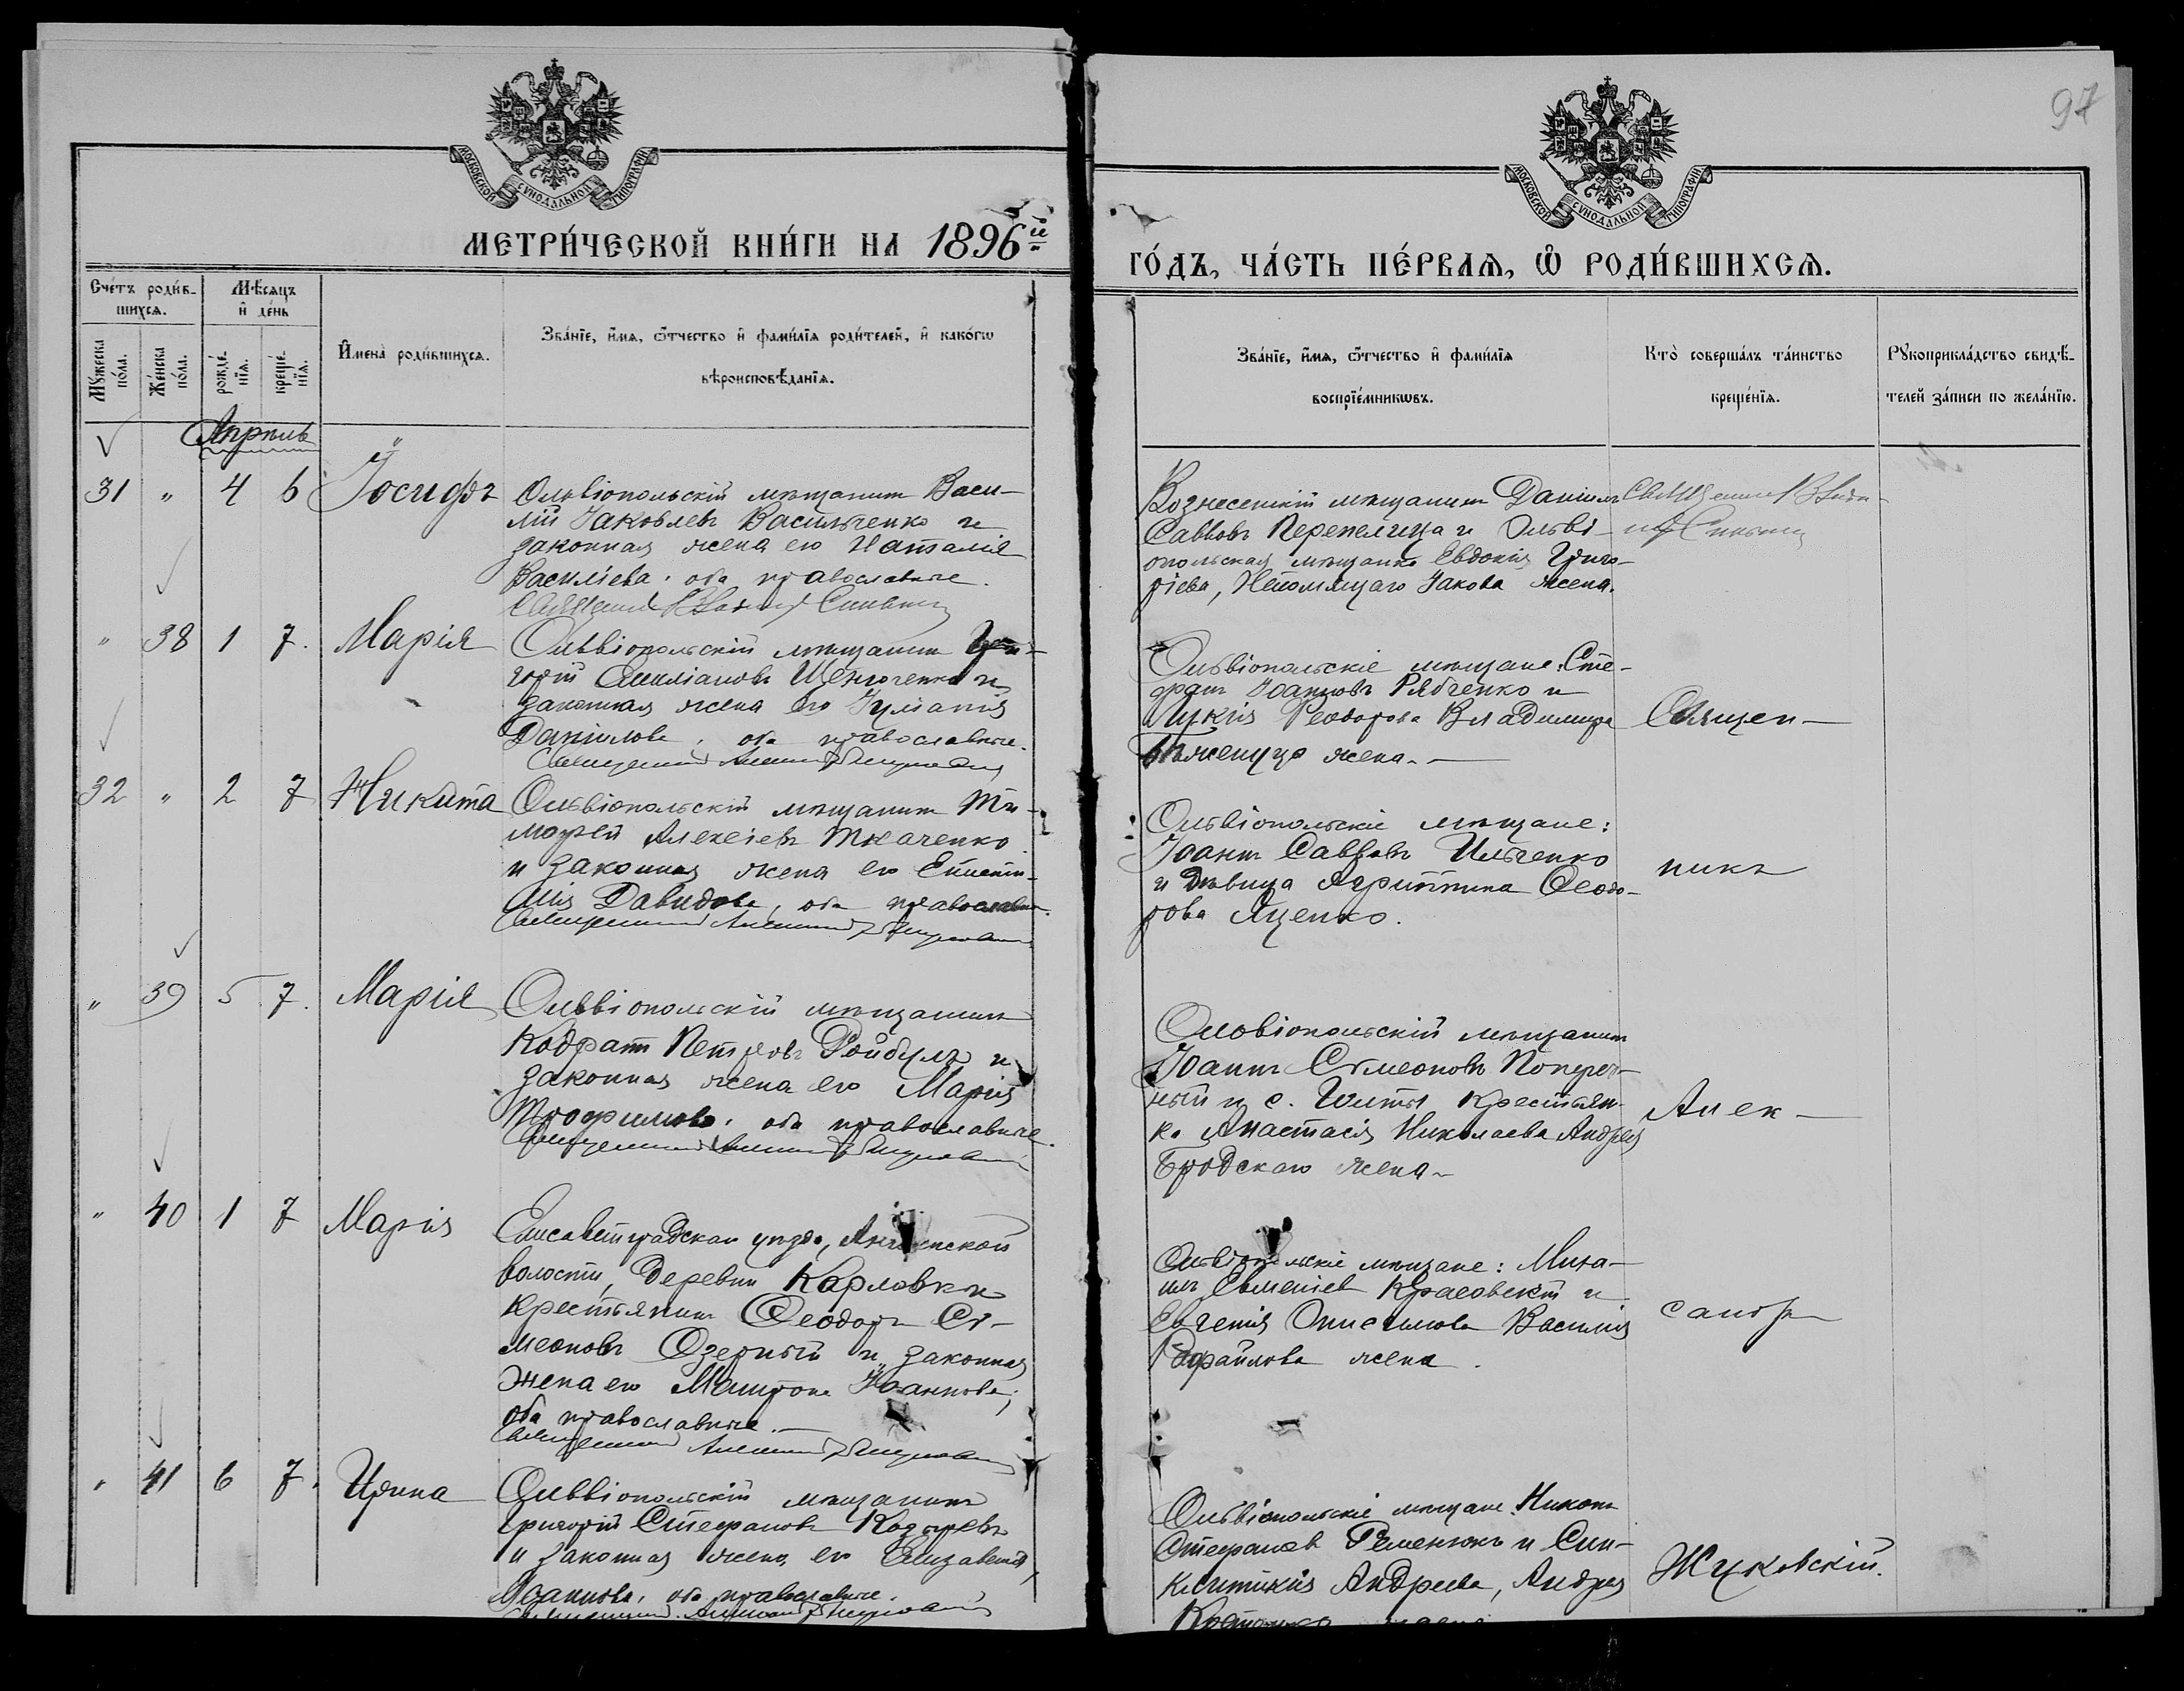 97
МОСКОВСКОЙ СѴНОДАЛЬНОЙ ТИПОГРАФІИ
МОСКОВСКОЙ СѴНОДАЛЬНОЙ ТИПОГРАФІИ
МЕТРИ́ЧЕСКОЙ КНИ́ГИ НА 1896й
ГО́ДЪ, ЧА́СТЬ ПЕ́РВАѦ, Ѡ РОДИ́ВШИХСѦ.
Сче́тъ роди́в-
шихсѧ.
Мѣ́сѧцъ
и҆ де́нь
Мꙋ́жеска
по́ла.
Же́нска
по́ла.
рожде́-
нїѧ.
креще́-
нїѧ.
И҆мена̀ роди́вшихсѧ.
Зва́нїе, и҆́мѧ, ѻ҆́тчество и҆ фамі́лїѧ роди́телей, и҆ како́гѡ
вѣроисповѣ́данїѧ.
Зва́нїе, и҆́мѧ, ѻ҆́тчество и҆ фамі́лїѧ
воспрїе́мникѡвъ.
Кто̀ соверша́лъ та́инство
креще́нїѧ.
Рꙋкоприкла́дство свидѣ́-
телей за́писи по жела́нїю.
Апрѣль
31 " 4 6 Іосифъ
Ольвіопольскій мѣщанинъ Васи-
лій Іаковлевъ Васильченко и
законная жена его Наталія
Василіева, оба православные.
Вознесенскій мѣщанинъ Даніилъ
Савовъ Перепелица и Ольві-
опольская мѣщанка Евдокія Григо-
ріева, Непомящаго Іакова жена.
" 38 1 7. Марія
Ольвіопольскій мѣщанинъ Гри-
горій Емиліановъ Шевченко и
законная жена его Іуліанія
Даніилова, оба православные.
Священникъ Александръ Жуковскій
Ольвіопольскіе мѣщане: Сте-
фанъ Іоанновъ Рябченко и
Лукія Ѳеодорова Владиміра
жена.
Священ-
32 " 2 7 Никита
Ольвіопольскій мѣщанинъ Ти-
моѳей Алексіевъ Ткаченко
и законная жена его
Давидова, оба православные.
Священникъ Александръ Жуковскій
Ольвіопольскіе мѣщане:
Іоаннъ Саввовъ Ильченко
и дѣвица Агриппина Ѳеодо-
рова Яценко.
никъ
" 39 5 7. Марія
Ольвіопольскій мѣщанинъ
Кодратъ Петровъ Ройбулъ и
законная жена его Марія
Трофимова, оба православные.
Священникъ Александръ Жуковскій
Ольвіопольскій мѣщанинъ
Іоаннъ Симеоновъ Попереч-
ный и с. Голты крестьян-
ка Анастасія Николаева Андрея
Бродскаго жена.
Алек-
" 40 1 7 Марія
Елисаветградскаго уѣзда,
волости, деревни Карловки
крестьянинъ Ѳеодоръ Си-
меоновъ Озерный и законная
жена его Матрона Іоаннова;
оба православные.
Священникъ Александръ Жуковскій
Ольвіопольскіе мѣщане: Миха-
илъ Евменіевъ Красовскій и
Евгенія Онисимова Василія
жена.
сандръ
" 41 6 7. Ирина
Ольвіопольскій мѣщанинъ
Григорій Стефановъ Козыревъ
и законная жена его Елизавета
Іоаннова, оба православные.
Священникъ Александръ Жуковскій
Ольвіопольскіе мѣщане Никонъ
Стефановъ Ременюкъ и Син-
клитикія Андреева, Андрея
жена
Жуковскій.